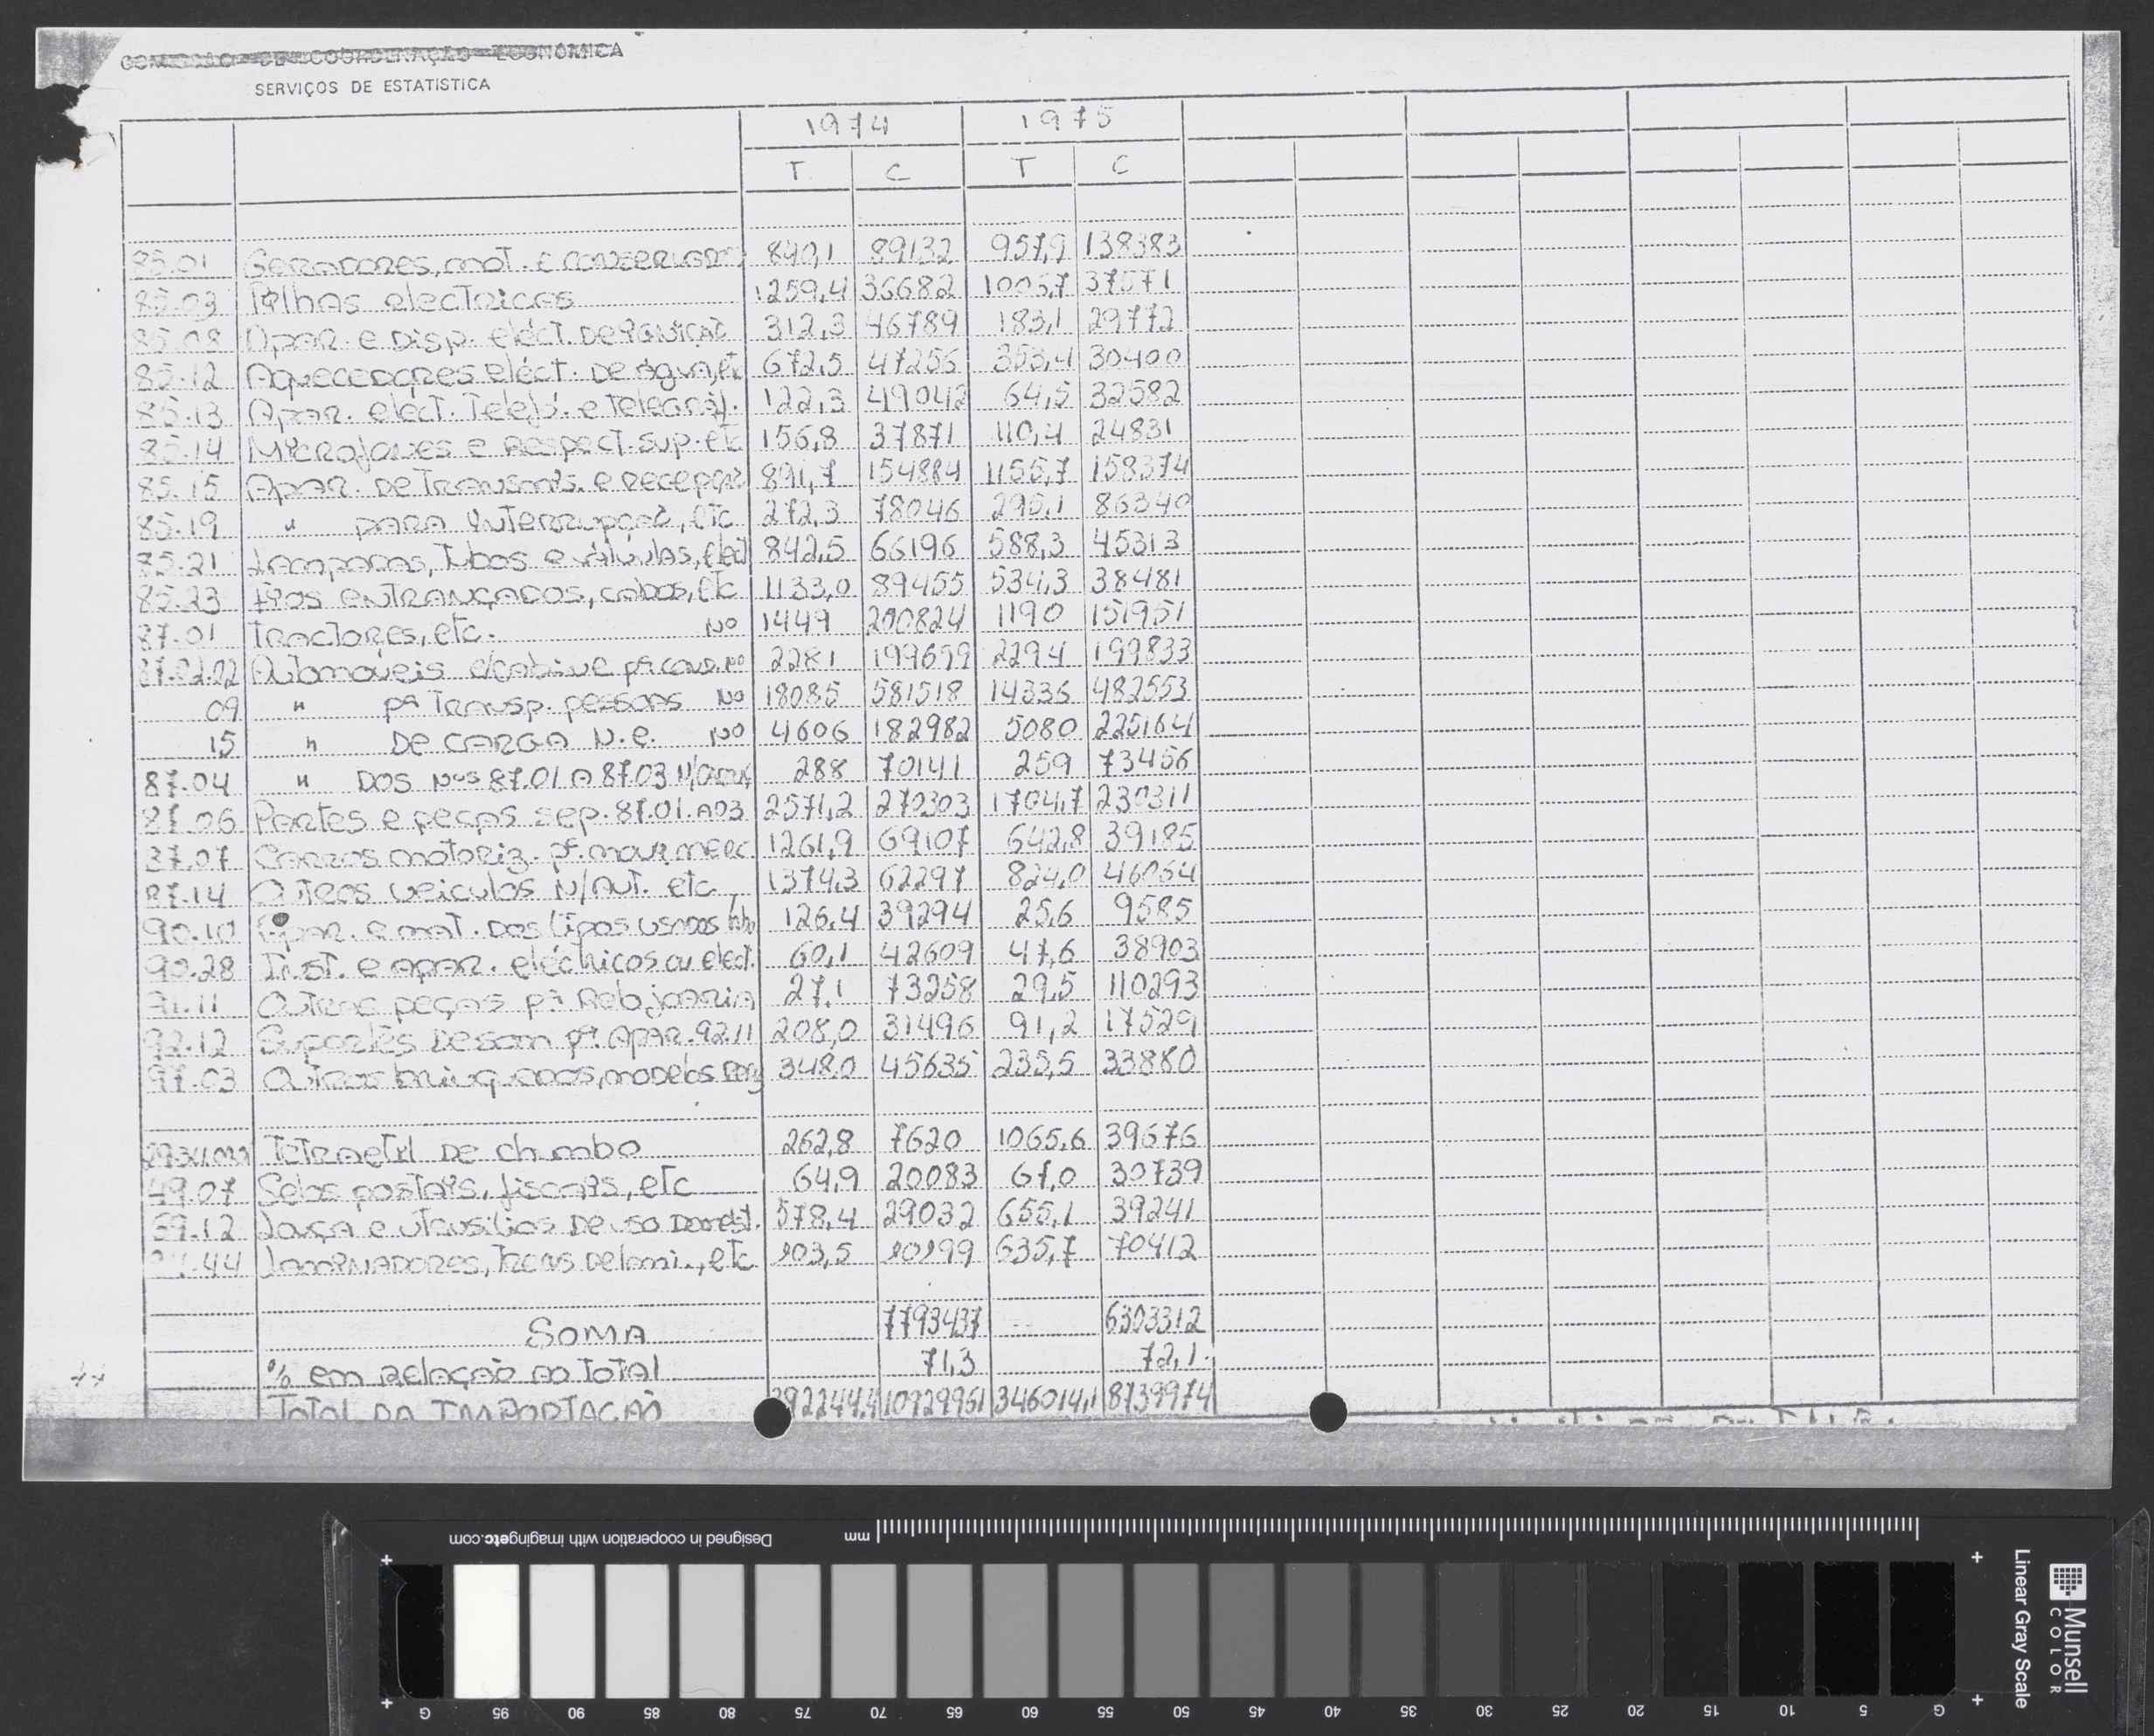 COMISSÃO DE COORDENAÇÃO ECONÓMICA
SERVIÇOS DE ESTATISTICA
1974 1975
T C T C
85.01 GERADORES, MOT. E 840,1 89132 957,9 138383
85.03 PILHAS ELECTRICAS 1259,4 36682 37571
85.08 APAR. E DISP. ELÉCT. DE IGNIÇÃO 312,3 46789 183,1 29772
85.12 AQUECEDORES ELÉCT. DE ÁGUA, etc 672,5 47256 353,4 30400
85.13 APAR. ELECT. TELEF. E TELEGRÁF. 122,3 49042 64,5 32582
85.14 MICROFONES E RESPECT. SUP. etc 156,8 37871 110,4 24831
85.15 APAR. DE TRANSMIS. E RECEPÇÃO 891,7 154884 1155,7 158374
85.19 " PARA INTERRUPÇÃO, etc 272,3 78046 295,1 86340
85.21 LÂMPADAS, TUBOS E VÁLVULAS, ELECT 842,5 66196 588,3 45313
85.23 FIOS ENTRANÇADOS, CABOS, etc 1133,0 89455 534,3 38481
87.01 TRACTORES, etc. Nº 1449 200824 1190 151951
87.02.02 AUTOMÓVEIS C/CABINE Pª Nº 2281 199659 2294 199833
09 " Pª TRANSP. PESSOAS Nº 18085 581518 14336 482553
15 " DE CARGA N.E. Nº 4606 182982 5080 225164
87.04 " DOS Nos 87.01 A 87.03 288 70141 259 73456
87.06 PARTES E PEÇAS SEP. 87.01. A03 2571,2 270303 1704,7 230311
87.07 CARROS MOTORIZ. Pª. MOV. MERC 1261,9 69107 642,8 39185
87.14 OUTROS VEICULOS N/AUT. etc 1374,3 62297 824,0 46054
90.10 APAR. E MAT. DOS TIPOS USADOS 126,4 39294 25,6 9585
90.28 INST. E APAR. ELÉCTRICOS OU ELECT. 60,1 42609 47,6 38903
91.11 OUTRAS PEÇAS Pª RELOJOARIA 27,1 73258 29,5 110293
92.12 SUPORTES DE SOM Pª. APAR. 92.11 208,0 31496 91,2 17529
97.03 OUTROS BRINQUEDOS, MODELOS 348,0 45635 235,5 33880
TETRAETIL DE CHUMBO 262,8 7620 1065,6 39676
49.07 SELOS POSTAIS, FISCAIS, etc 64,9 20083 67,0 30739
69.12 LOUÇA E UTENSILIOS DE USO DOMÉST. 578,4 29032 655,1 39241
84.44 LAMINADORES, TRENS DE LAMI., etc 103,5 10199 635,7 70412
SOMA 7793437 6303312
% EM RELAÇÃO AO TOTAL 71,3 72,1
TOTAL DA IMPORTAÇÃO 392244,4 10929961 346014,1 8739974
Designed in cooperation with imagingetc.com
mm
Munsell
COLOR
Linear Gray Scale
G 95 90 85 80 75 70 65 60 55 50 45 40 35 30 25 20 15 10 5 G